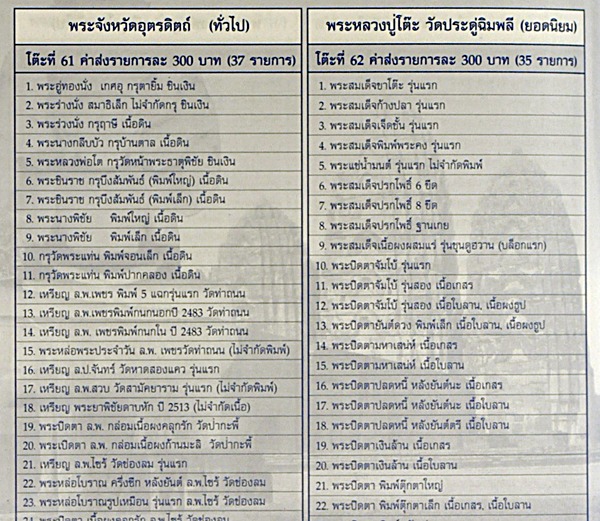 พระจังหวัดอุตรดิตถ์ (ทั่วไป)
โต๊ะที่ 61 ค่าส่งรายการละ 300 บาท (37 รายการ)
1. พระอู่ทองนั่ง เกศอุ กรุตายิ้ม ชินเงิน
2. พระร่วงนั่ง สมาธิเล็ก ไม่จำกัดกรุ ชินเงิน
3. พระร่วงนั่ง กรุฤาษี เนื้อดิน
4. พระนางกลีบบัว กรุบ้านตาล เนื้อดิน
5. พระหลวงพ่อโต กรุวัดหน้าพระธาตุพิชัย ชินเงิน
6. พระชินราช กรุบึงสัมพันธ์ (พิมพ์ใหญ่) เนื้อดิน
7. พระชินราช กรุบึงสัมพันธ์ (พิมพ์เล็ก) เนื้อดิน
8. พระนางพิชัย พิมพ์ใหญ่ เนื้อดิน
9. พระนางพิชัย พิมพ์เล็ก เนื้อดิน
10. กรุวัดพระแท่น พิมพ์จอนเล็ก เนื้อดิน
11. กรุวัดพระแท่น พิมพ์ปากคลอง เนื้อดิน
12. เหรียญ ล.พ.เพชร พิมพ์ 5 แฉกรุ่นแรก วัดท่าถนน
13. เหรียญ ล.พ.เพชรพิมพ์กนกนอกปี 2483 วัดท่าถนน
14. เหรียญ ล.พ.เพชร พิมพ์กนกใน ปี 2483 วัดท่าถนน
15. พระหล่อพระประจำวัน ล.พ. เพชรวัดท่าถนน (ไม่จำกัดพิมพ์)
16. เหรียญ ล.ป.จันทร์ วัดหาดสองแคว รุ่นแรก
17. เหรียญ ล.พ.สวบ วัดสามัคยาราม รุ่นแรก (ไม่จำกัดพิมพ์)
18. เหรียญ พระยาพิชัยดาบหัก ปี 2513 (ไม่จำกัดเนื้อ)
19. พระปิดตา ล.พ. กล่อมเนื้อผงคลุกรัก วัดปากะพี้
20. พระปิดตา ล.พ. กล่อมเนื้อผงก้านมะลิ วัดปากะพี้
21. เหรียญ ล.พ.ไซร้ วัดช่องลม รุ่นแรก
22. พระหล่อโบราณ ครึ่งซีก หลังยันต์ ล.พ.ไซร้ วัดช่องลม
23. พระหล่อโบราณรูปเหมือน รุ่นแรก ล.พ.ไซร้ วัดช่องลม
พระหลวงปู่โต๊ะ วัดประดู่ฉิมพลี (ยอดนิยม)
โต๊ะที่ 62 ค่าส่งรายการละ 300 บาท (35 รายการ)
1. พระสมเด็จขาโต๊ะ รุ่นแรก
2. พระสมเด็จก้างปลา รุ่นแรก
3. พระสมเด็จเจ็ดชั้น รุ่นแรก
4. พระสมเด็จพิมพ์พระคง รุ่นแรก
5. พระแช่น้ำมนต์ รุ่นแรก ไม่จำกัดพิมพ์
6. พระสมเด็จปรกโพธิ์ 6 ขีด
7. พระสมเด็จปรกโพธิ์ 8 ขีด
8. พระสมเด็จปรกโพธิ์ ฐานเกย
9. พระสมเด็จเนื้อผงผสมแร่ รุ่นขุนดูฮวาน (บล็อกแรก)
10. พระปิดตาจัมโบ้ รุ่นแรก
11. พระปิดตาจัมโบ้ รุ่นสอง เนื้อเกสร
12. พระปิดตาจัมโบ้ รุ่นสอง เนื้อใบลาน, เนื้อผงธูป
13. พระปิดตายันต์ดวง พิมพ์เล็ก เนื้อใบลาน, เนื้อผงธูป
14. พระปิดตามหาเสน่ห์ เนื้อเกสร
15. พระปิดตามหาเสน่ห์ เนื้อใบลาน
16. พระปิดตาปลดหนี้ หลังยันต์นะ เนื้อเกสร
17. พระปิดตาปลดหนี้ หลังยันต์นะ เนื้อใบลาน
18. พระปิดตาปลดหนี้ หลังยันต์ตรี เนื้อใบลาน
19. พระปิดตาเงินล้าน เนื้อเกสร
20. พระปิดตาเงินล้าน เนื้อใบลาน
21. พระปิดตา พิมพ์ตุ๊กตาใหญ่
22. พระปิดตา พิมพ์ตุ๊กตาเล็ก เนื้อเกสร, เนื้อใบลาน